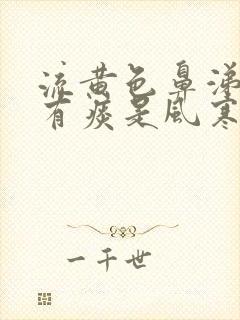 流黄色鼻涕
有痰是风寒
一千世